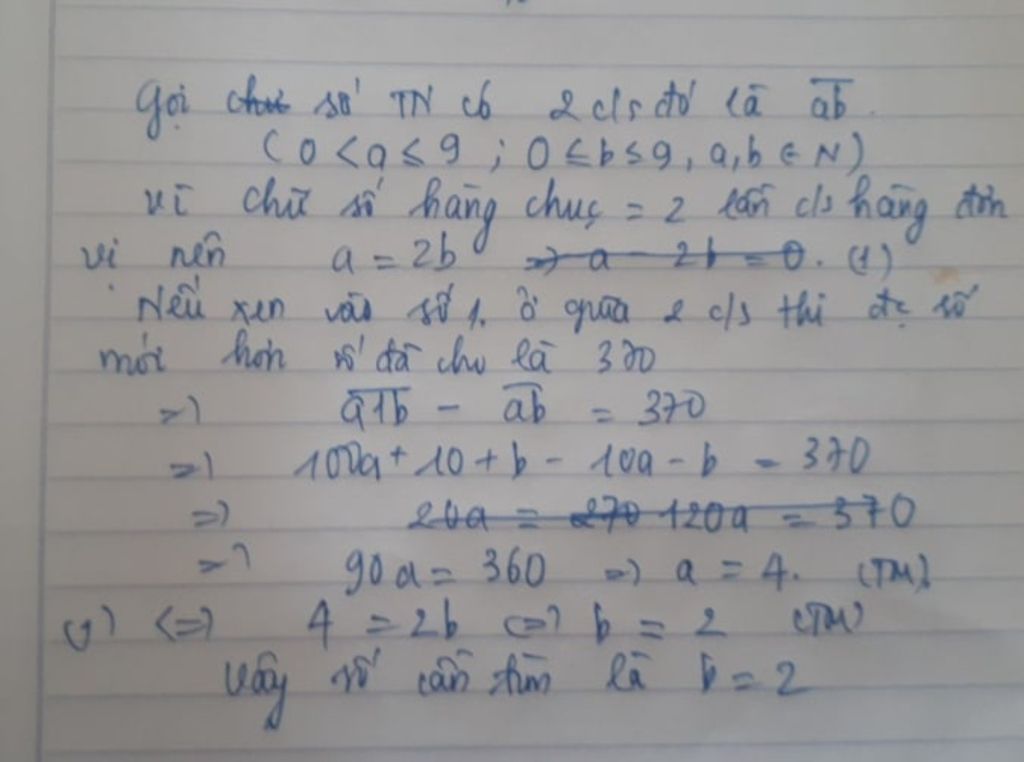 Gọi số TN có 2 c/s đó là ab̅
( 0 < a ≤ 9 ; 0 ≤ b ≤ 9, a,b ∈ N )
vì chữ số hàng chục = 2 lần c/s hàng đơn
vị nên a = 2b ⇒ a - 2b = 0. (1)
Nếu xen vào số 1. ở giữa 2 c/s thì đc số
mới hơn số đã cho là 370
=> a̅1̅b̅ - a̅b̅ = 370
=> 100a + 10 + b - 10a - b = 370
=> 20a = 270 120a = 370
=> 90a = 360 => a = 4. (TM)
(1) <=> 4 = 2b <=> b = 2 (TM)
Vậy số cần tìm là b = 2